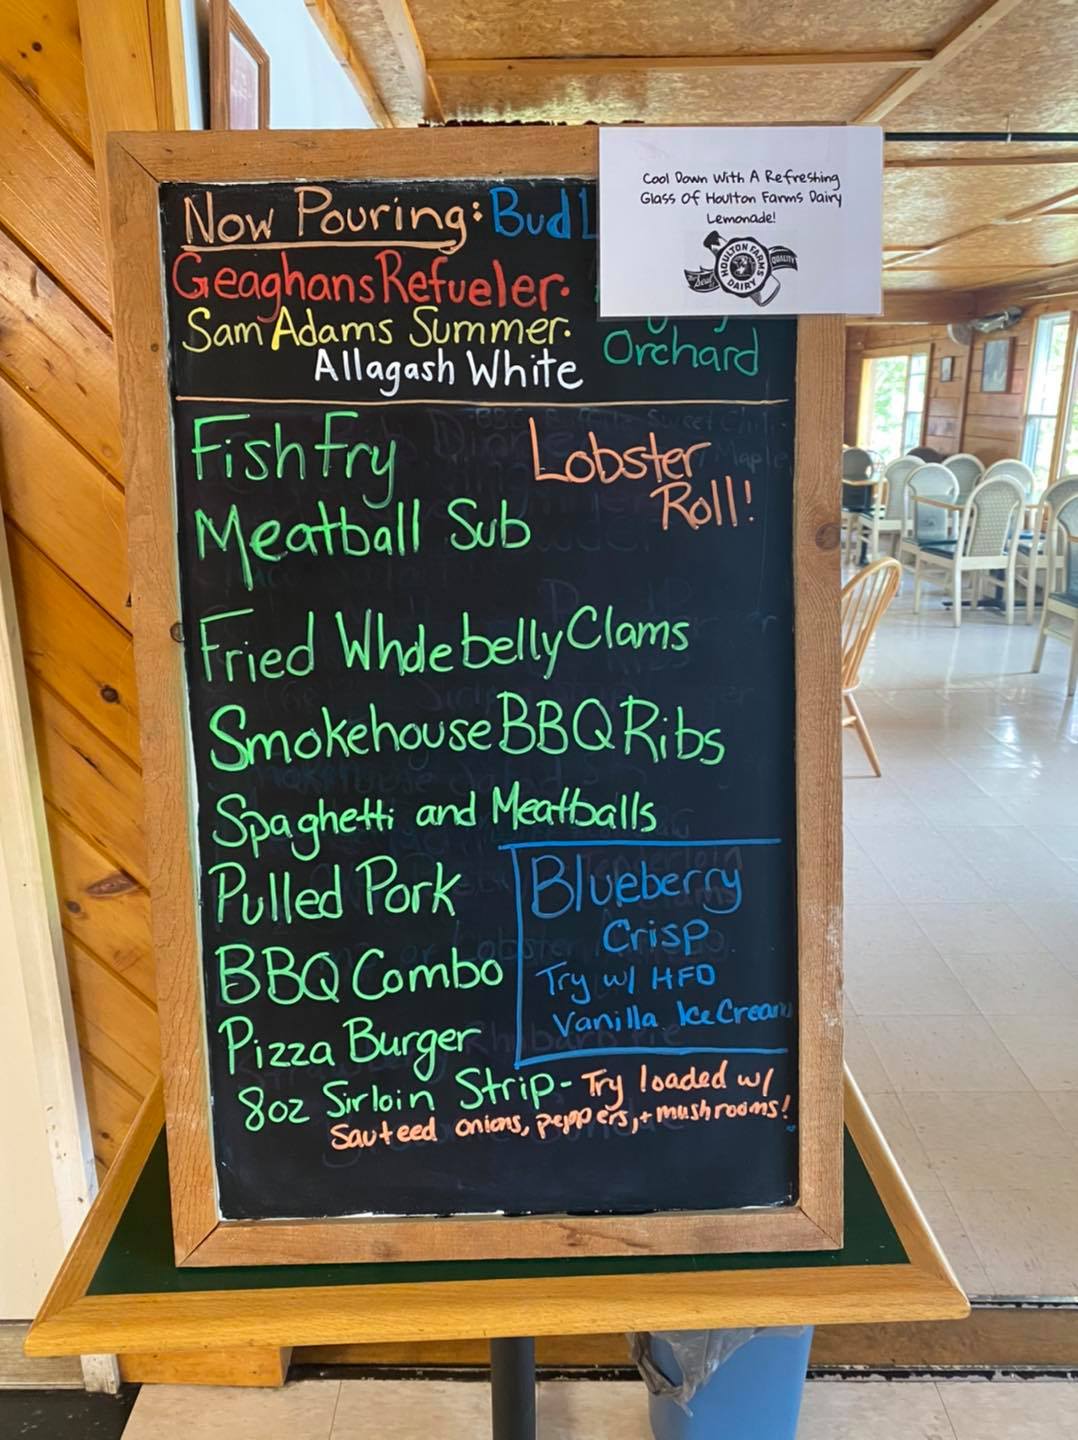 Cool Down With A Refreshing
Glass Of Houlton Farms Dairy
Lemonade!
HOULTON FARMS
DAIRY
QUALITY
Now Pouring: Bud
Geaghans Refueler.
Sam Adams Summer.
Orchard
Allagash White
Fish Fry
Lobster
Roll!
Meatball Sub
Fried Wholebelly Clams
Smokehouse BBQ Ribs
Spaghetti and Meatballs
Pulled Pork
Blueberry
Crisp
BBQ Combo
Try w/ HFD
Vanilla Ice Cream
Pizza Burger
8oz Sirloin Strip - Try loaded w/
Sauteed onions, peppers, + mushrooms!